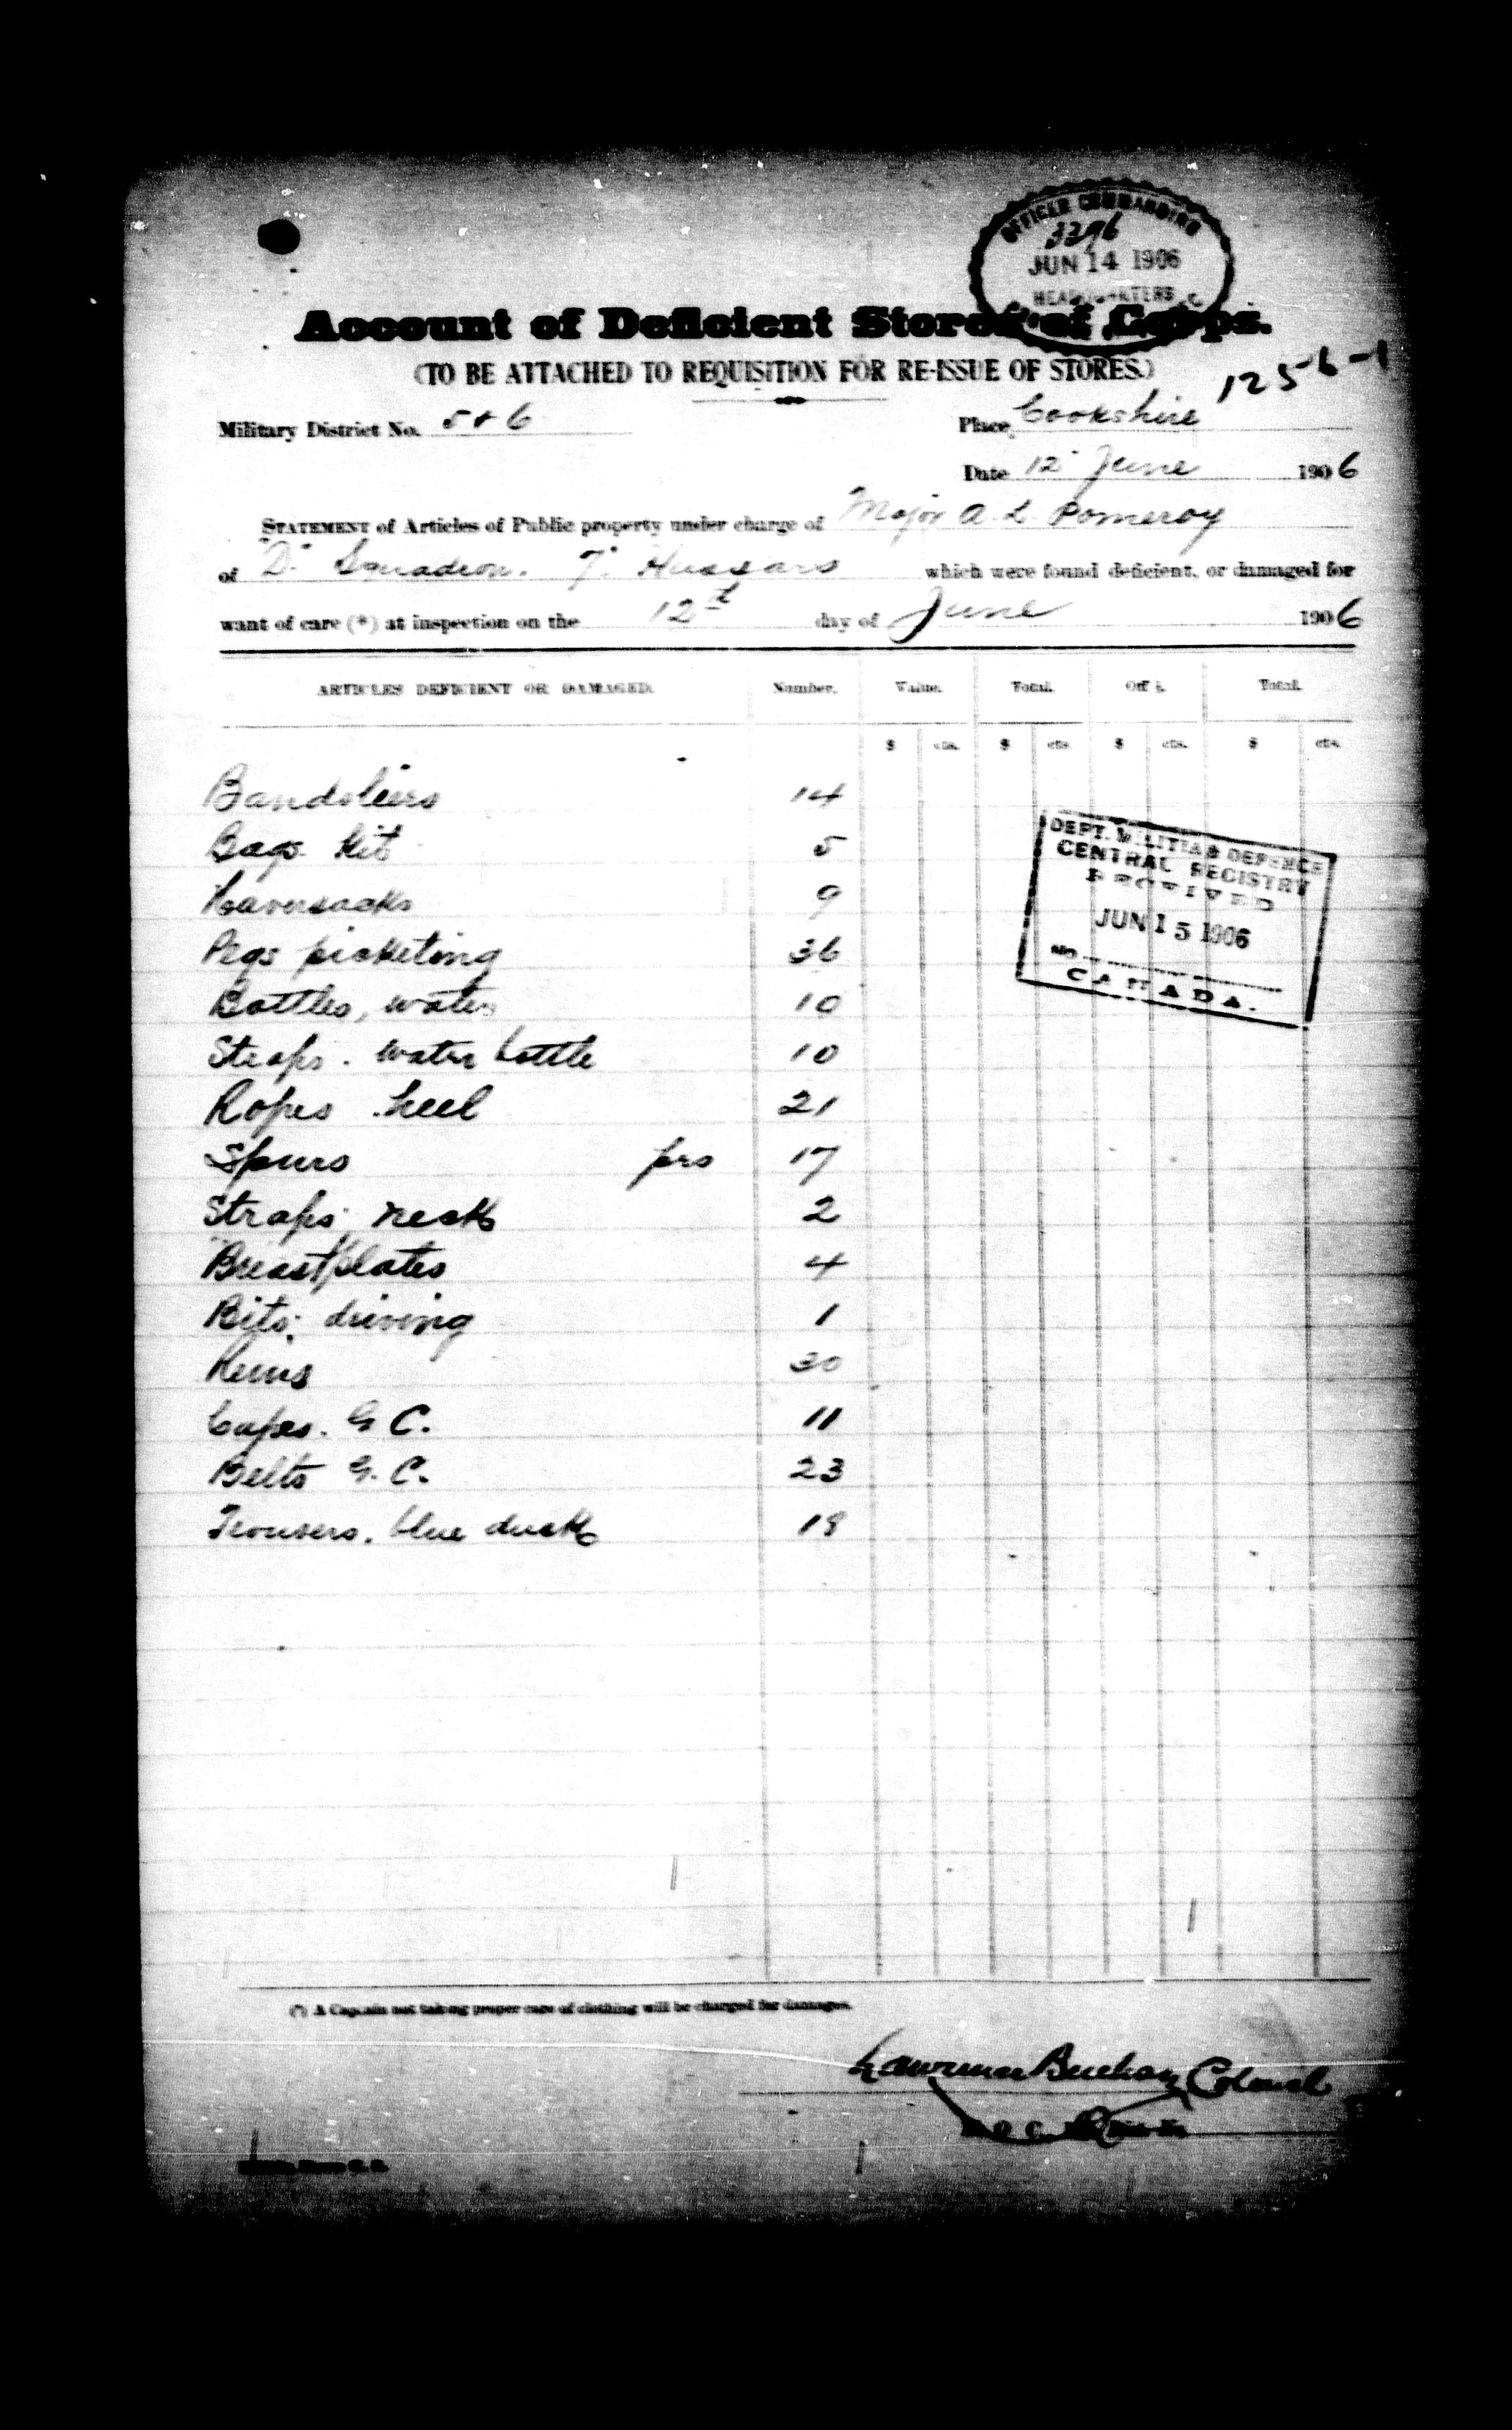 OFFICER COMMANDING
3296
JUN 14 1906
HEADQUARTERS
Account of Deficient Stores of Corps.
(TO BE ATTACHED TO REQUISITION FOR RE-ISSUE OF STORES.)
125-6-1
Military District No. 5 & 6
Place Cookshire
Date 12 June 1906
STATEMENT of Articles of Public property under charge of Major A. L. Pomeroy
of "D" Squadron. 7 Hussars which were found deficient, or damaged for
want of care (*) at inspection on the 12th day of June 1906
ARTICLES DEFICIENT OR DAMAGED. Number. Value. Total. Off Total.
$ cts. $ cts. $ cts. $ cts.
Bandoliers 14
Bags Kit 5
Haversacks 9
Pegs picketing 36
Bottles, water 10
Straps. water bottle 10
Ropes heel 21
Spurs prs 17
Straps neck 2
Breastplates 4
Bits, driving 1
Reins 30
Capes. G C. 11
Belts G. C. 23
Trousers. blue duck 18
DEPT. MILITIA & DEFENCE
CENTRAL REGISTRY
RECEIVED
JUN 15 1906
NO.
CANADA.
(*) A Captain not taking proper care of clothing will be charged for damages.
Lawrence Buchan Colonel